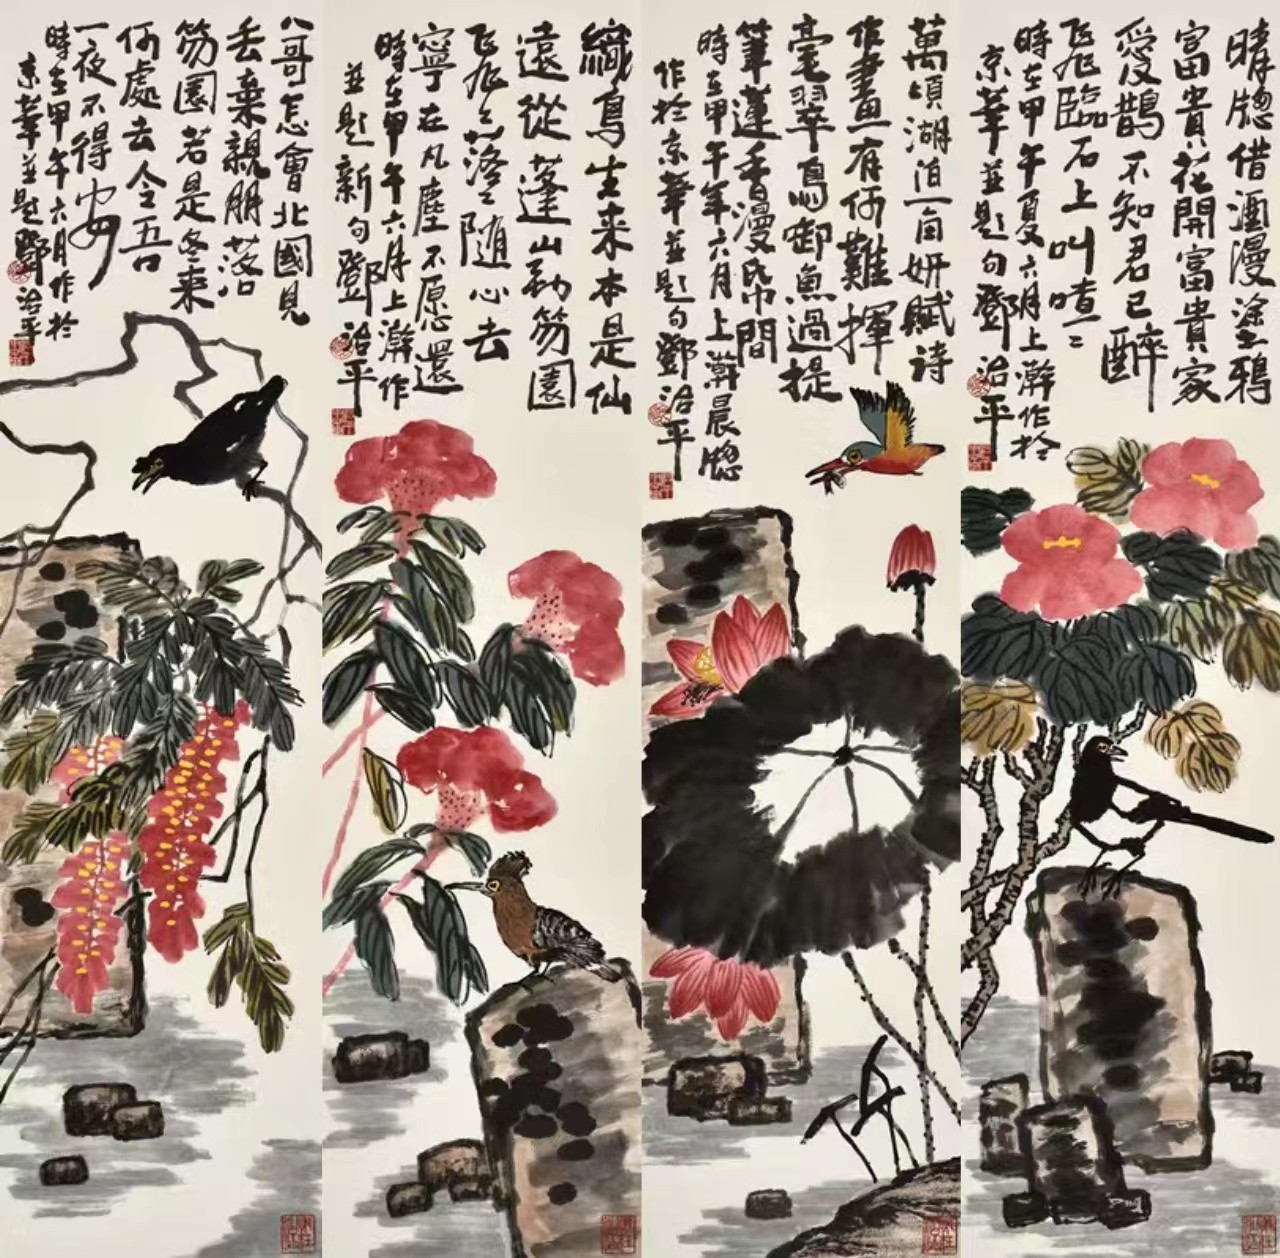 晴牕借酒漫塗鴉
富貴花開富貴家
愛鵲不知君已醉
飛臨石上叫喳〻
時在甲午夏六月上澣作扵
京華並題句鄧治平
萬頃湖泊一亩妍賦詩
作畫有何難揮
毫翠鳥啣魚過提
筆蓮香漫帋間
時在甲午年六月上澣晨牕
作扵京華並題句鄧治平
鳥生来本是仙
遠從蓬山勤笏園
飛〻落〻隨心去
寧在凡塵不愿還
時在甲午六月上澣作
並題新句鄧治平
八哥怎會北國見
丢棄親朋落
笏園若是冬来
何處去令吾
一夜不得安
時在甲午六月作扵
京華並題鄧治平